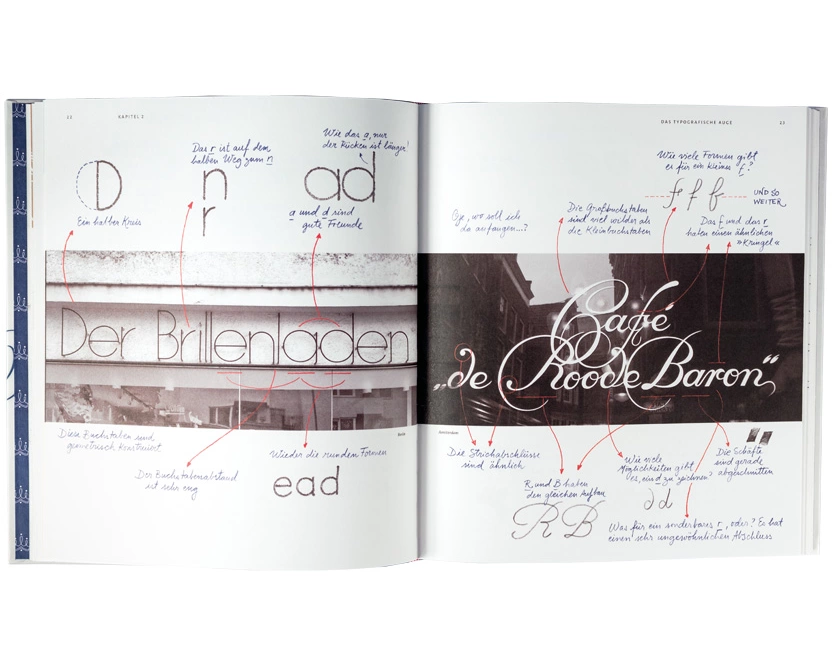 12 KAPITEL 2
D
Ein halber Kreis
Das r ist auf dem
halben Weg zum n
n
r
Wie das a, nur
der Rücken ist länger!
ad
a und d sind
gute Freunde
Der Brillenladen
Berlin
Diese Buchstaben sind
geometrisch konstruiert
Der Buchstabenabstand
ist sehr eng
Wieder die runden Formen
ead
DAS TYPOGRAFISCHE AUGE 13
Oje, wo soll ich
da anfangen...?
Die Großbuchstaben
sind viel wilder als
die Kleinbuchstaben
Wie viele Formen gibt
es für ein kleines f?
f f f
UND SO
WEITER
Das f und das r
haben einen ähnlichen
»Kringel«
Café
„de Roode Baron“
Amsterdam
Die Strichabschlüsse
sind ähnlich
R und B haben
den gleichen Aufbau
R B
Wie viele
Möglichkeiten gibt
es, ein d zu zeichnen?
d d
Die Schäfte
sind gerade
abgeschnitten
Was für ein sonderbares r, oder? Es hat
einen sehr ungewöhnlichen Abschluss